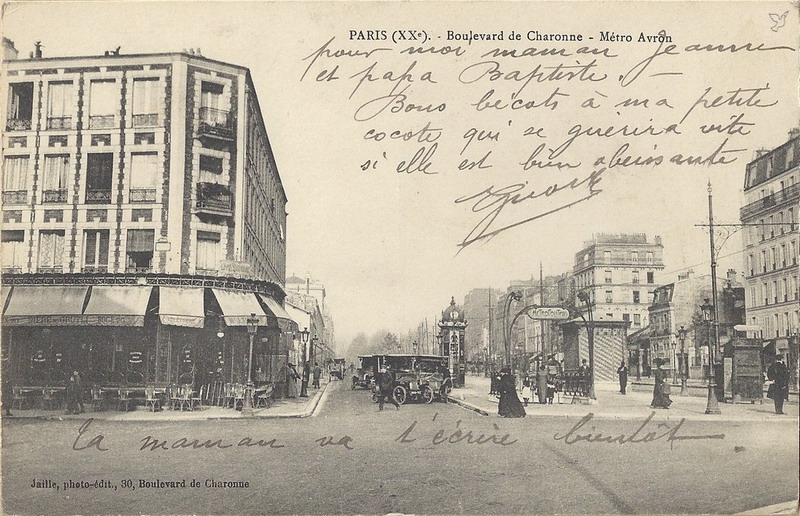 PARIS (XXe). - Boulevard de Charonne - Métro Avron
pour moi maman Jeanne
et papa Baptiste. —
Bons bécots à ma petite
cocote qui se guérira vite
si elle est bien obeissante
Metropolitain
Ta maman va t'écrire bientôt.
Jaille, photo-édit., 30, Boulevard de Charonne